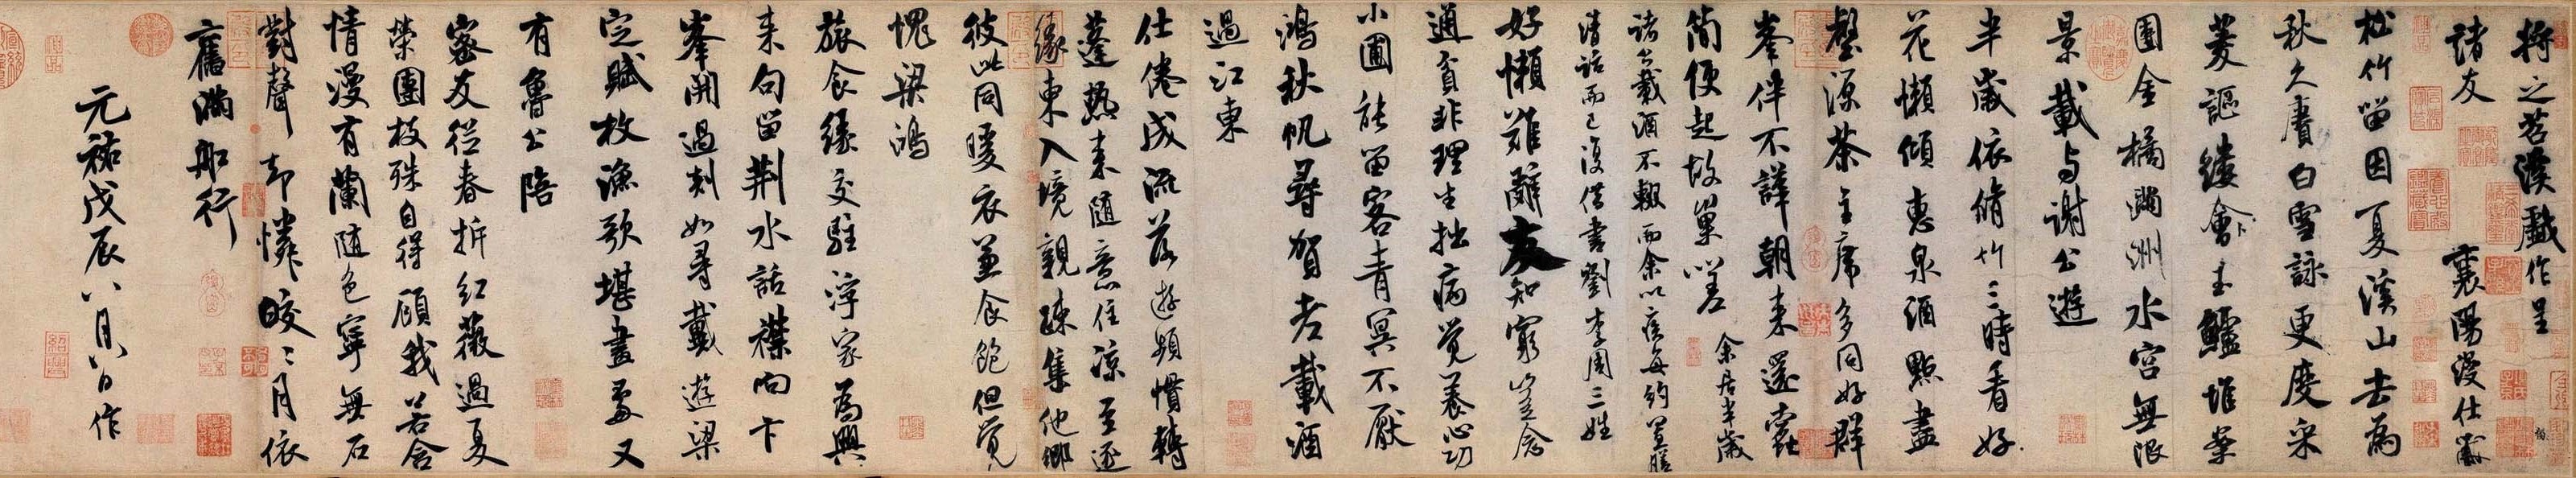 将之苕溪戲作呈
諸友 襄陽漫仕黻
松竹留因夏溪山去為
秋久賡白雪詠更度采
菱謳縷會玉鱸堆案
團金橘滿洲水宮無限
景載与謝公遊
半歲依脩竹三時看好
花懶傾惠泉酒點盡
壑源茶主席多同好群
峯伴不譁朝来還蠹
簡便起故巢嗟 余居半歲
諸公載酒不輟而余以疾每約置膳
清話而已復借書劉李周三姓
好懶難辭友知窮豈念
通貧非理生拙病覺養心功
小圃能留客青冥不厭
鴻秋帆尋賀老載酒
過江東
仕倦成流落遊頻慣轉
蓬熱来隨意住涼至逐
緣東入境親疎集他鄉
彼此同暖衣兼食飽但覺
愧梁鴻
旅食緣交駐浮家為興
来句留荆水話襟向卞
峯開過剡如尋戴遊梁
定賦枚漁歌堪畫處又
有魯公陪
密友從春拆紅薇過夏
榮團枝殊自得顧我若含
情漫有蘭隨色寧無石
對聲却憐皎〻月依
舊滿舡行
元祐戊辰八月八日作